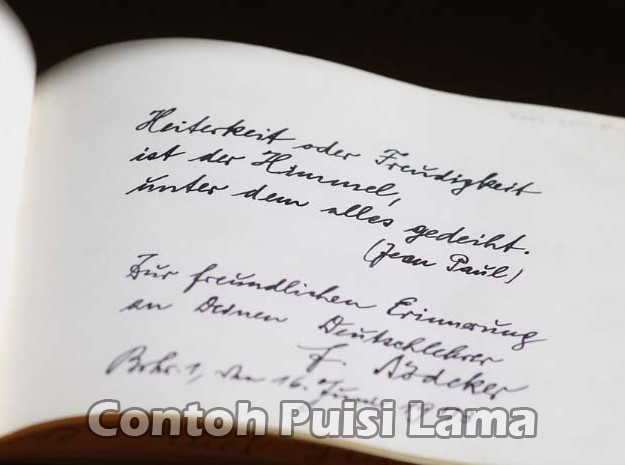 Heiterkeit oder Freudigkeit
ist der Himmel,
unter dem alles gedeiht.
(Jean Paul)
Zur freundlichen Erinnerung
an Deinen Deutschlehrer
den 16. Juni
Contoh Puisi Lama